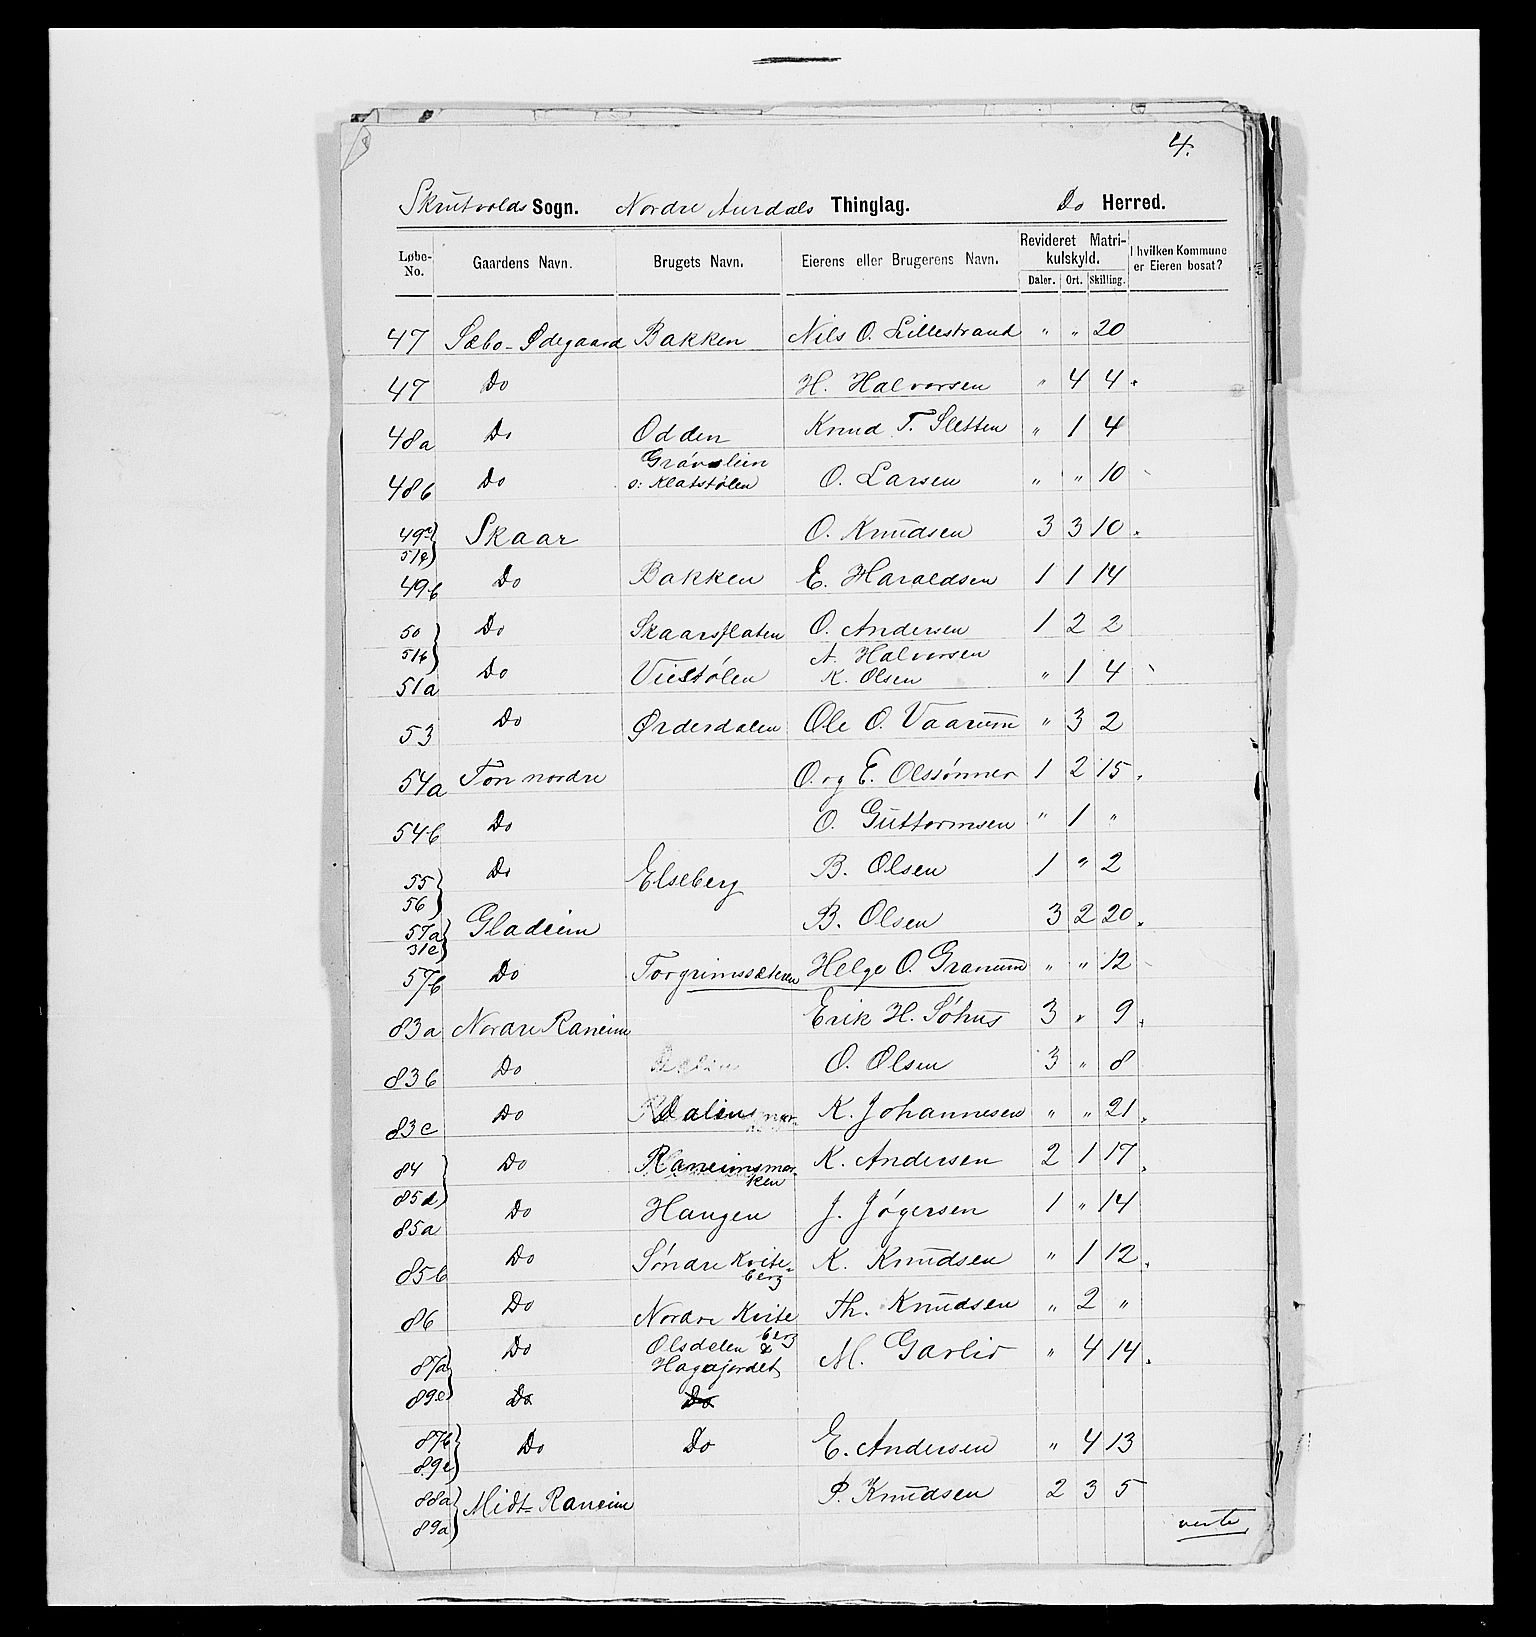 4.
Skrutvolds Sogn. Nordre Aurdals Thinglag. Do Herred.
Løbe-No. Gaardens Navn. Brugets Navn. Eierens eller Brugerens Navn. Revideret Matrikulskyld. Daler. Ort. Skilling. I hvilken Kommune er Eieren bosat?
47 Sæbo-Ødegaard Bakken Nils O. Lillestrand " " 20
47 Do H. Halvorsen " 4 4
48a Do Odden Knud T. Sletten " 1 4
48b Do Grøvslien o: Klatstølen O. Larsen " " 10
49a 51e } Skaar O. Knudsen 3 3 10
49b Do Bakken E. Haraldsen 1 1 14
50 51b } Do Skaarsflaten O. Andersen 1 2 2
51a Do Viestølen A. Halvorsen K. Olsen " 1 4
53 Do Ørderdalen Ole O. Vaarum " 3 2
54a Ton nordre O. og E. Olssønner 1 2 15
54b Do O. Guttormsen " 1 "
55 56 } Do Elseberg B. Olsen 1 " 2
57a 31e } Gladeim B. Olsen 3 2 20
57b Do Torgrimssæteren Helge O. Granum " " 12
83a Nordre Raneim Erik H. Søhus 3 " 9
83b Do O. Olsen 3 " 8
83c Do Dalen K. Johannesen " " 21
84 85d } Do Raneimsmarken K. Andersen 2 1 17
85a Do Haugen J. Jøgersen 1 " 14
85b Do Søndre Kviteberg K. Knudsen " 1 12
86 Do Nordre Kviteberg Th. Knudsen " 2 "
87a 89e } Do Olsdalen & Hagajordet M. Garlid " 4 14
Do Do
87b 89c } Do Do E. Andersen " 4 13
88a 89a } Midt-Raneim P. Knudsen 2 3 5
verte